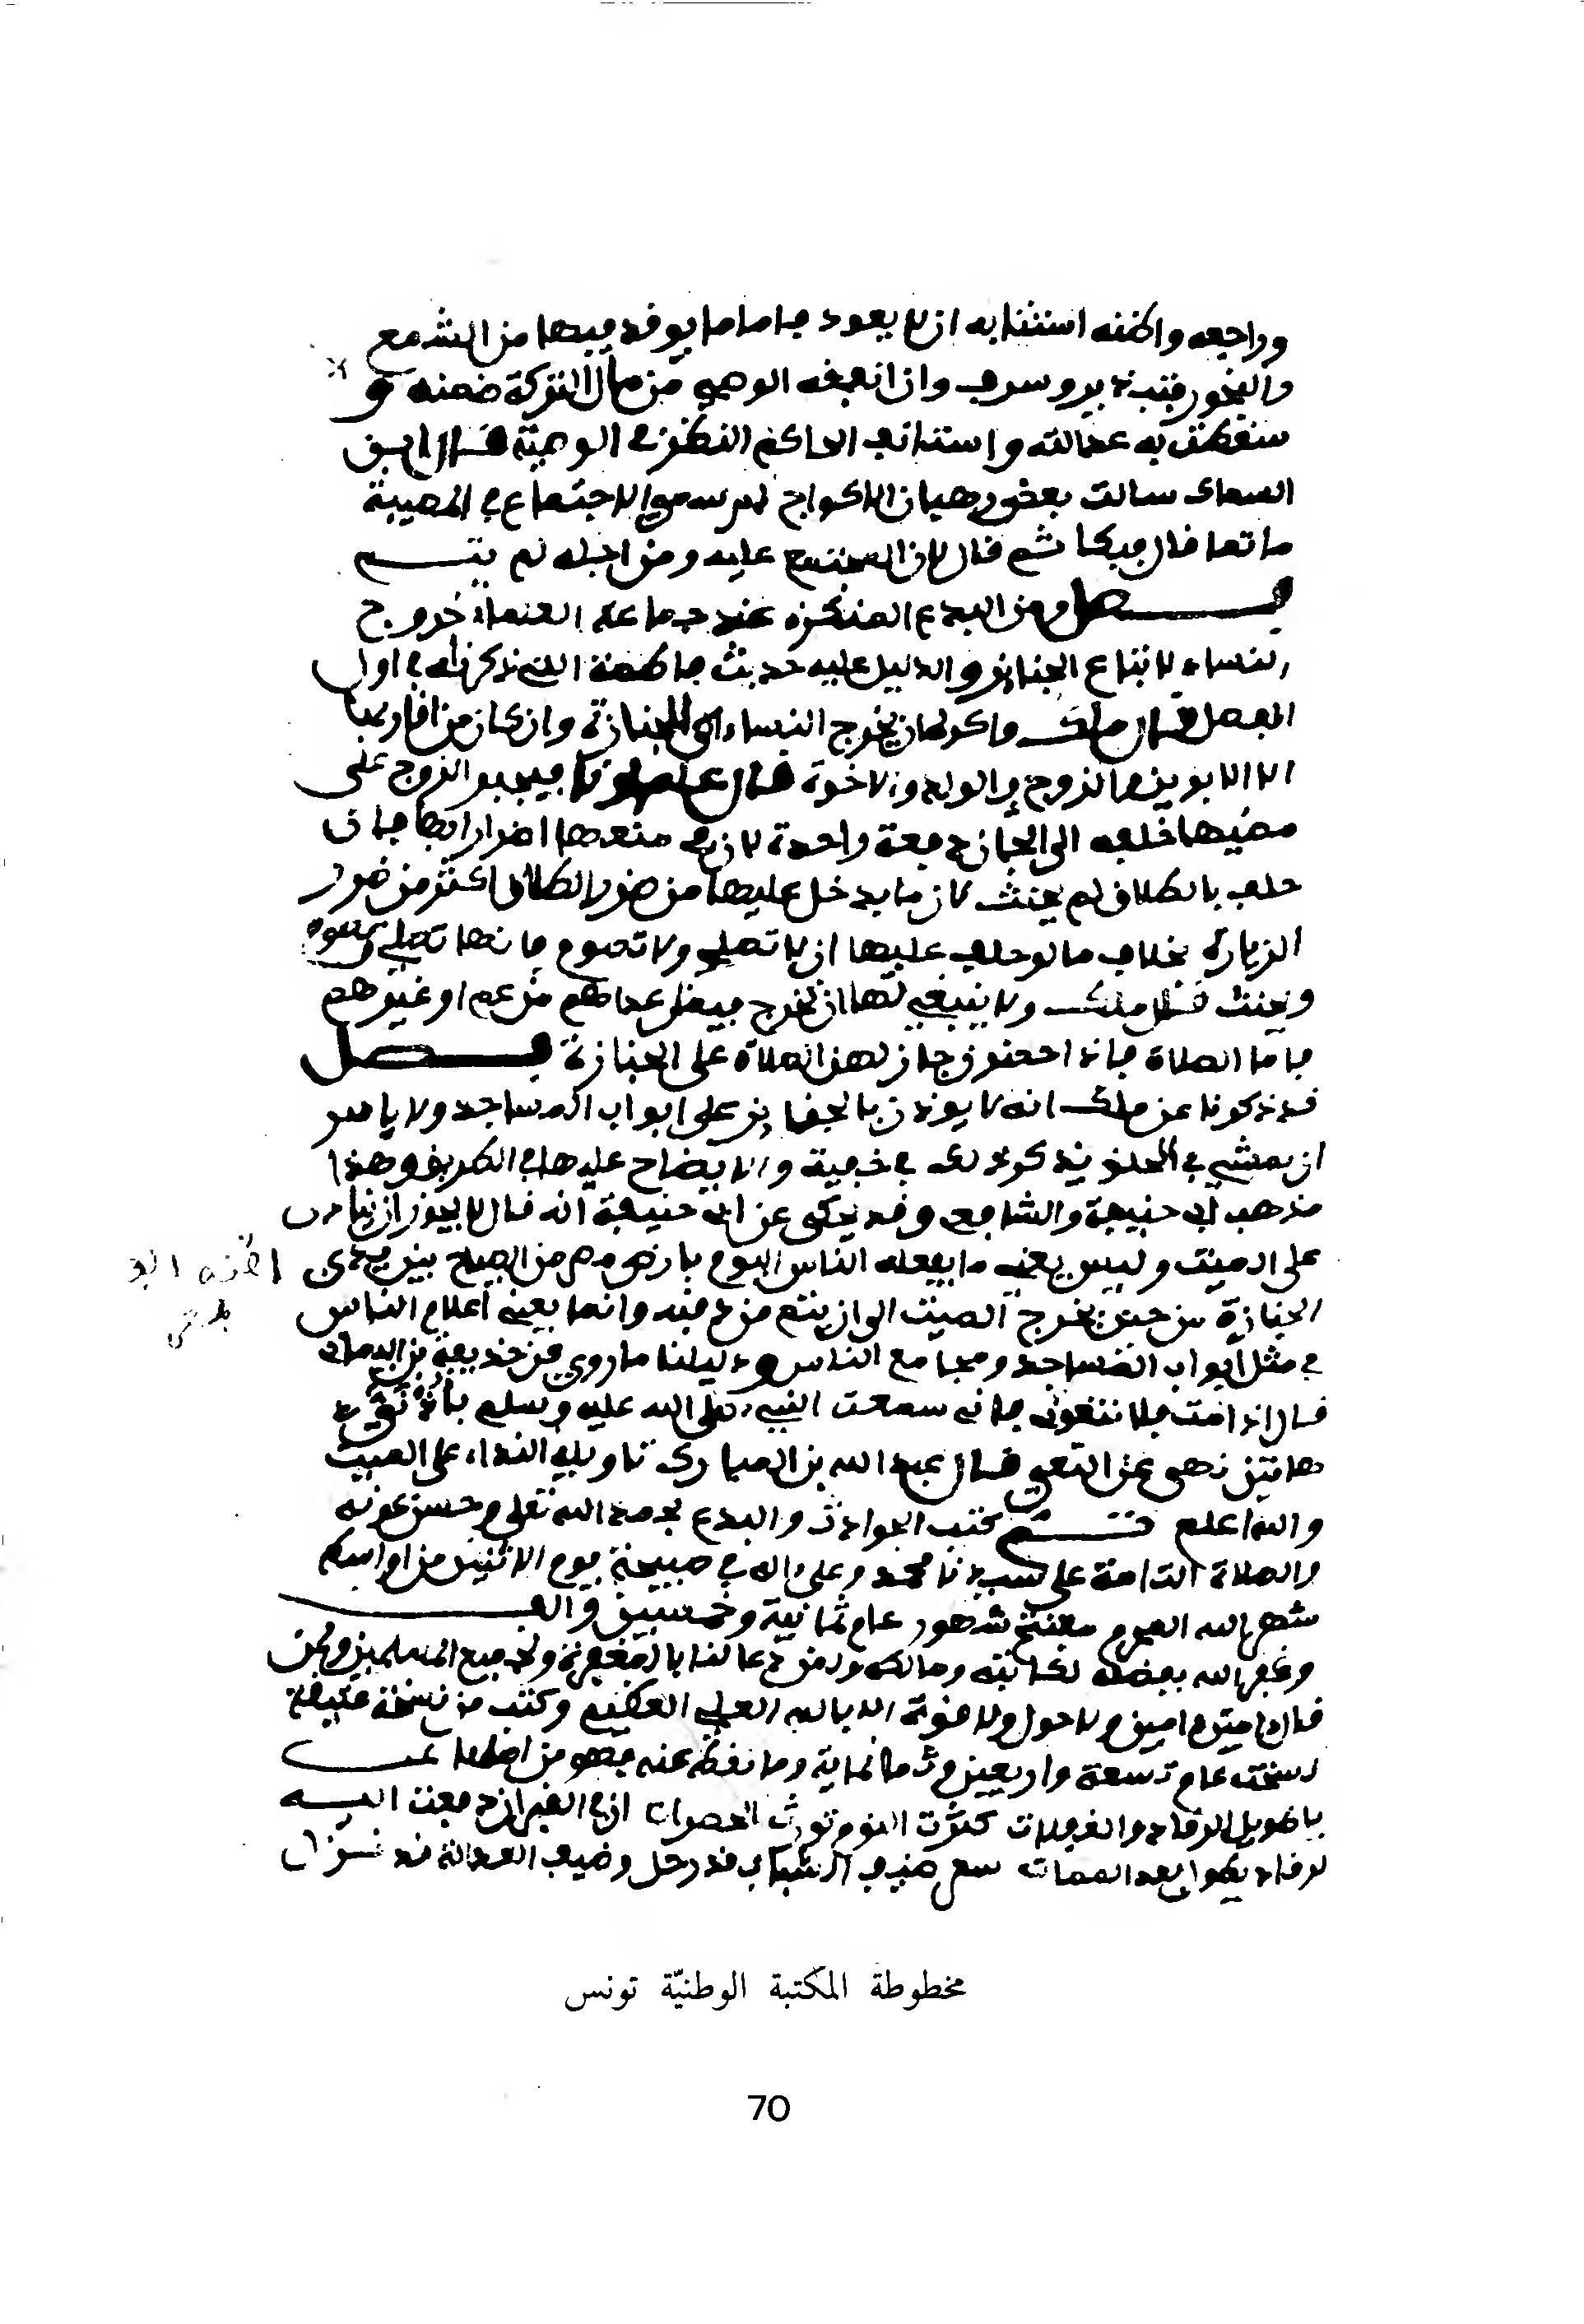 وراجعه واظنه استثنا به ان لا يعود فاما ما يوقد فيها من الشمع
والبخور فتبذير وسرف وان انفقه الوصي من مال التركة ضمنه و
سقطت به عدالته واستانف الحاكم النظر في الوصية قال ابن
السماك سالت بعض رهبان الاكواح لم سمي الاجتماع في المصيبة
ماتما قال فبكا ثم قال لان المجتمع عليه ومن اجله لم يتم
فصل ومن البدع المنكرة عند جماعة العلماء خروج
النساء لاتباع الجنائز والدليل عليه حديث فاطمة الذي ذكرناه في اول
الفصل قال ملك واكره ان يخرج النساء الى الجنازة وان كان من اقاربها
الا الابوين والزوج والولد والاخوة قال علماونا فيجبر الزوج على
مضيها خلفه الى الجنازة دفعة واحدة لان في منعها اضرارا بها فان
حلف بالطلاق لم يحنث لان ما يدخل عليها من ضرر الطلاق اكثر من ضرر
الزيارة بخلاف ما لو حلف عليها ان لا تصلي ولا تصوم فانها تصلي وتصوم
ويحنث قال ملك ولا ينبغي لها ان تخرج فيمن عداهم من عم او غيرهم
فاما الصلاة فاذا احضرن جاز لهن الصلاة على الجنازة فصل
قد ذكرنا عن ملك انه لا يوذن بالجنائز على ابواب المساجد ولا باس
ان يمشي في الحلق يذكر ذلك في خفية والا يصاح عليها في الطريق وهذا
مذهب ابي حنيفة والشافعي وقد يحكى عن ابي حنيفة انه قال لا يجوز ان ينادى
على الميت وليس يعني ما يفعله الناس اليوم بارض مصر من الصياح بين يدي
الجنازة من حين يخرج الميت الى ان يتم من دفنه وانما يعني اعلام الناس
في مثل ابواب المساجد ومجامع الناس ودليلنا ما روي عن حذيفة بن اليمان
قال اذا مت فلا تنعوني فاني سمعت النبي صلى الله عليه وسلم باذني
هاتين نهى عن النعي قال عبد الله بن المبارك تاويله النداء على الميت
والله اعلم تم كتب الحوادث والبدع بحمد الله تعلى وحسن عونه
والصلاة التامة على سيدنا محمد وعلى اله في صبيحة يوم الاثنين من اواسط
شهر الله المحرم مفتتح شهور عام ثمانية وخمسين والف
وغفر الله بفضله لكاتبه ومالكه ولمن دعا لنا بالمغفرة ولجميع المسلمين ولمن
قال امين امين ولا حول ولا قوة الا بالله العلي العظيم وكتب من نسخة عتيقة
نسخت عام تسعة واربعين وثمانماية وما نقط عنه فهو من اصلها
يا طويل الرقاد والغفلات كثرت النوم تورث الحسرات ان في القبر ان دفعت اليه
لرقاد يطول بعد الممات ضيف الشباب قد رحل وضيف
مخطوطة المكتبة الوطنيّة تونس
70